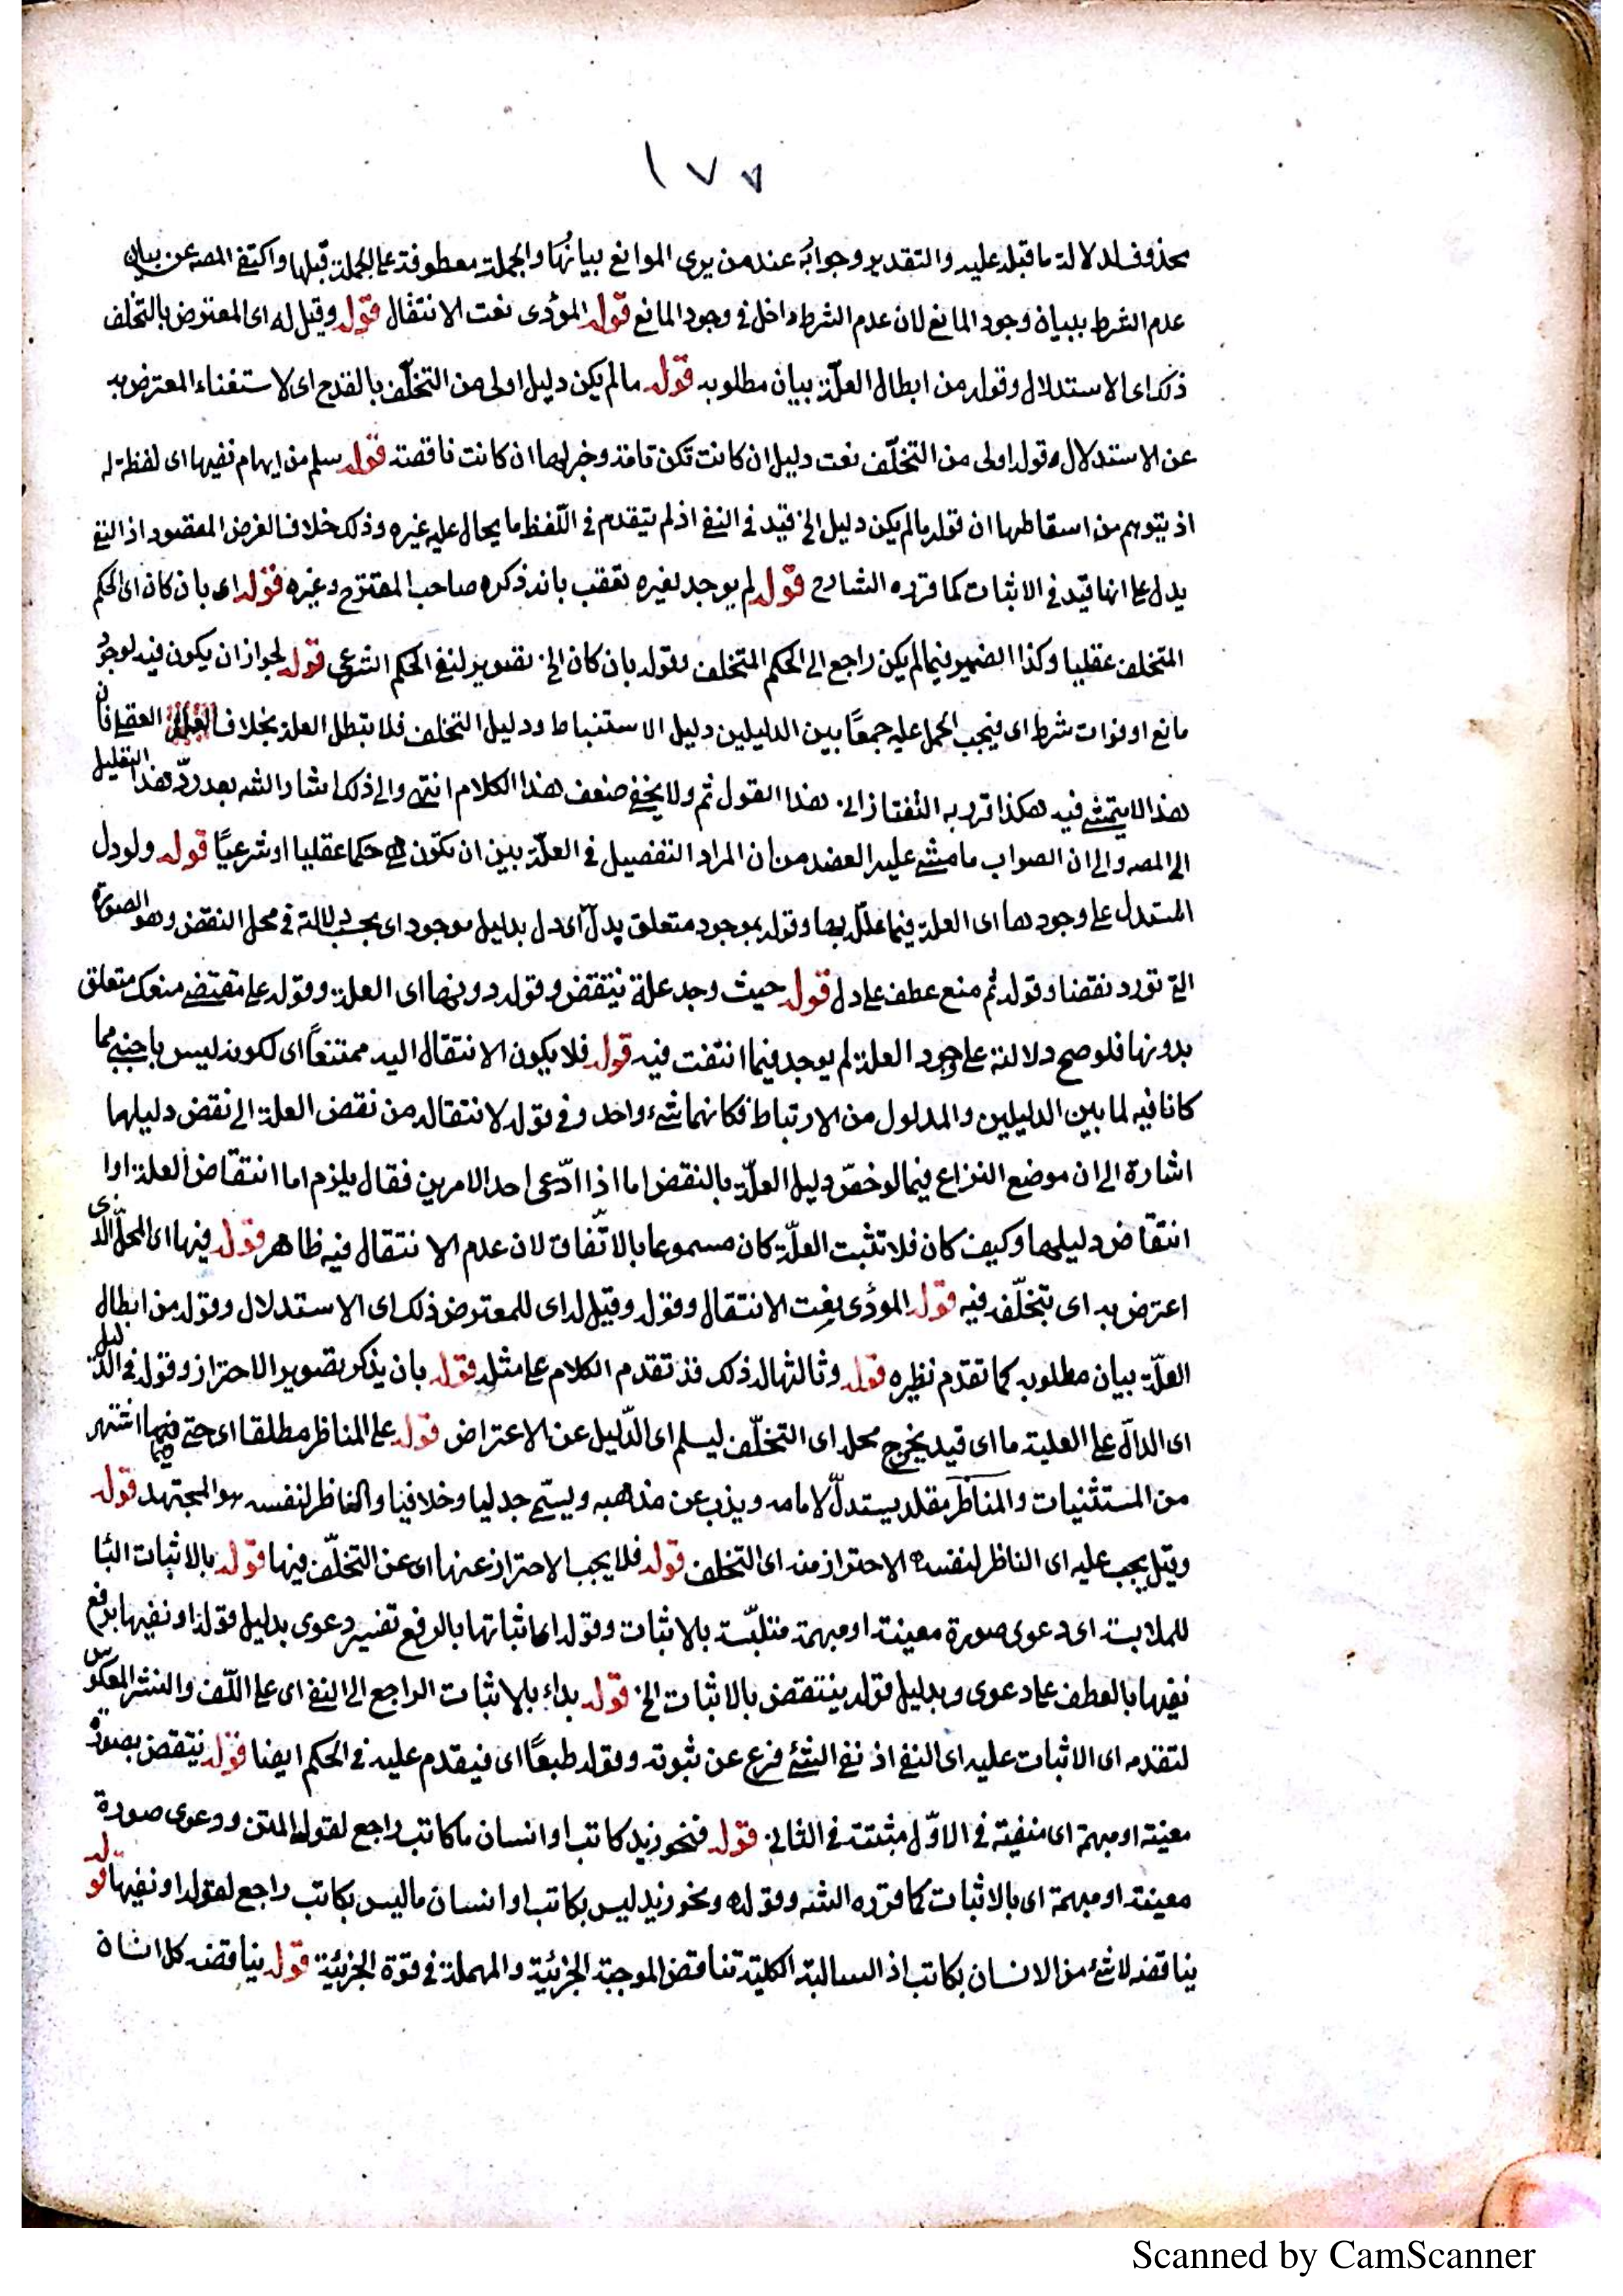 ١٧٧
محذوف لدلالة ما قبله عليه والتقدير وجوابه عند من يرى الموانع بيانُها والجملة معطوفة على الجملة قبلها واكتفى المصه عن بيان
عدم الشرط ببيان وجود المانع لان عدم الشرط داخل في وجود المانع قوله المؤدى نعت الانتقال قوله وقيل له اى المعترض بالتخلف
ذلك اى الاستدلال وقوله من ابطال العلّة بيان مطلوبه قوله ما لم يكن دليل اولى من التخلّف بالقدح اى لاستغناء المعترض به
عن الاستدلال وقوله اولى من التخلّف نعت دليل ان كانت تكن تامة وخبرلها ان كانت ناقصة قوله سلم من ايهام نفيها اى لفظة له
اذ يتوهم من اسقاطها ان قوله ما لم يكن دليل الخ قيد في النفي اذ لم يتقدم في اللّفظ ما يحال عليه غيره وذلك خلاف الغرض المقصود اذ النفي
يدل على انها قيد في الاثبات كما قرره الشارح قوله لم يوجد لغيره تعقب بانه ذكره صاحب المقترح وغيره قوله اى بان كان اى الحكم
المتخلف عقليا وكذا الضمير فيما لم يكن راجع الى الحكم المتخلف وقوله بان كان الخ تصوير لنفي الحكم الشرعى قوله لجواز ان يكون فيه لوجود
مانع او فوات شرط اى فيجب الحمل عليه جمعًا بين الدليلين دليل الاستنباط ودليل التخلف فلا تبطل العلة بخلاف العقلي فان
هذا لا يتمشى فيه هكذا قرر به التفتازانى هذا القول ثم ولا يخفى ضعف هذا الكلام انتهى والى ذلك اشار الشه بعد ردّ هذا التعليل
الى المصه والى ان الصواب ما مشى عليه العضد من ان المراد التفصيل في العلّة بين ان تكون حكما عقليا او شرعيًا قوله ولو دل
المستدل على وجودها اى العلة فيما علّل بها وقوله بموجود متعلق بدلّ اى دل بدليل موجود اى بحسب دلالة في محل النقض وهو الصورة
التي تورد نقضا وقوله ثم منع عطف على دل قوله حيث وجد علة ينتقض وقوله دونها اى العلة وقوله على مقتضى منعك متعلق
بدونها فلو صح دلالته على وجود العلة لم يوجد فيما انتفت فيه قوله فلا يكون الانتقال اليه ممتنعًا اى لكونه ليس باجنبي مما
كانا فيه لما بين الدليلين والمدلول من الارتباط فكانهما شىء واحد وفي قوله لانتقاله من نقض العلة الى نقض دليلها
اشارة الى ان موضع النزاع فيما لو خصّ دليل العلّة بالنقض اما اذا ادّعى احد الامرين فقال يلزم اما انتقاض العلة او
انتقاض دليلها وكيف كان فلا تثبت العلّة كان مسموعا بالاتّفاق لان عدم الانتقال فيه ظاهر قوله فيها اى المحلّ الذى
اعترض به اى تخلّف فيه قوله المؤدى نعت الانتقال وقوله وقيل له اى للمعترض ذلك اى الاستدلال وقوله من ابطال
العلّة بيان مطلوبه كما تقدم نظيره قوله وثالثها له ذلك قد تقدم الكلام على مثله قوله بان يذكر تصوير الاحتراز وقوله في الدليل
اى الدالّ على العلية ما اى قيد يخرج محله اى التخلّف ليسلم اى الدّليل عن الاعتراض قوله على المناظر مطلقا اى حتى فيما اشتهر
من المستثنيات والمناظر مقلد يستدلّ لامامه ويذب عن مذهبه ويسمّى جدليا وخلافيا والناظر لنفسه هو المجتهد قوله
وقيل يجب عليه اى الناظر لنفسه الاحتراز منه اى التخلف قوله فلا يجب الاحتراز عنها اى عن التخلّف فيها قوله بالاثبات البا
للملابسة اى دعوى صورة معينة او مبهمة متلبّسة بالاثبات وقوله اى اثباتها بالرفع تفسير دعوى بدليل قوله او نفيها برفع
نفيها بالعطف على دعوى وبدليل قوله ينتقض بالاثبات الخ قوله بداء بالاثبات الراجع الى النفي اى على اللّف والنشر المعكوس
لتقدمه اى الاثبات عليه اى النفي اذ نفي الشئ فرع عن ثبوته وقوله طبعًا اى فيقدم عليه في الحكم ايضا قوله ينتقض بصورة
معينة او مبهمة اى منفية في الاوّل مثبتة في الثانى قوله فنحو زيد كاتب او انسان ما كاتب راجع لقوله المتن ودعوى صورة
معينة او مبهمة اى بالاثبات كما قرره الشه وقوله ونحو زيد ليس بكاتب او انسان ما ليس بكاتب راجع لقوله او نفيها قوله
يناقضه لا شئ من الانسان بكاتب اذ السالبة الكلية تناقض الموجبة الجزئية والمهملة في قوة الجزئية قوله يناقضه كل انسان
Scanned by CamScanner